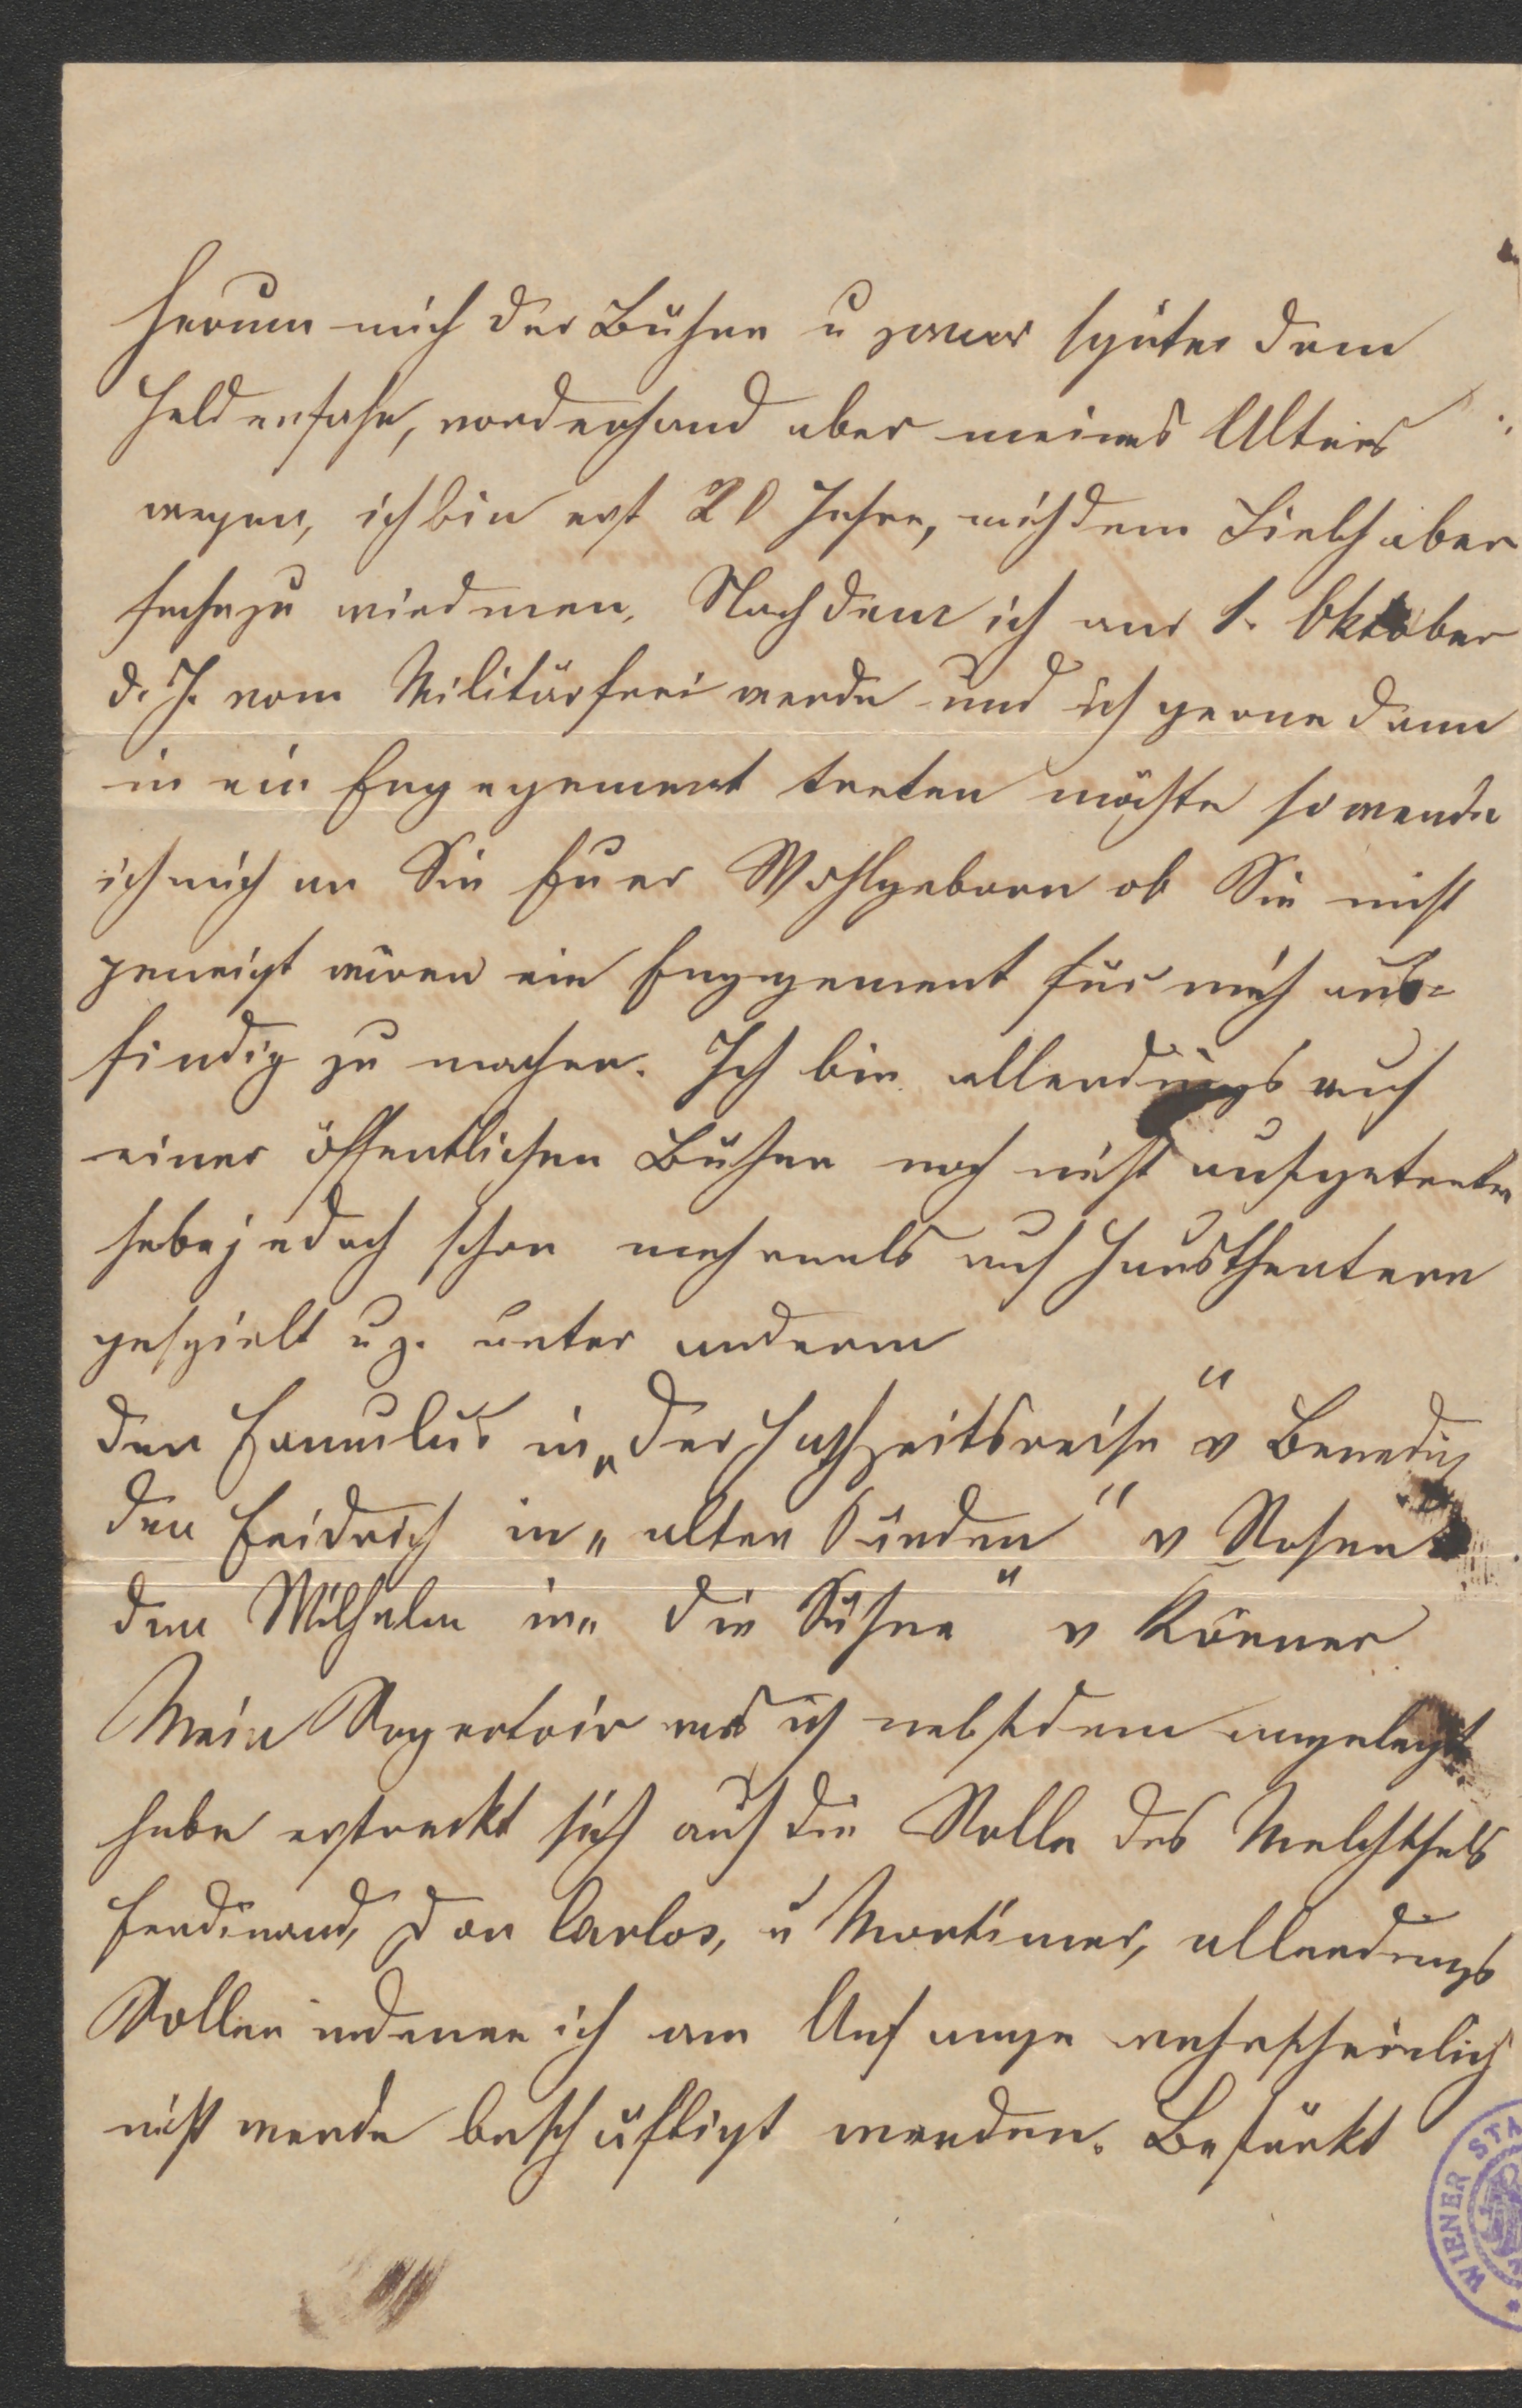 herum mich der Bühne u zwar später dem
Heldenfache, vorderhand aber meines Alters
wegen, ich bin erst 20 Jahre, mich dem Liebhaber
fache zu wiedmen. Nachdem ich am 1. Oktober
d. J. vom Militär frei werde und ich gerne dann
in ein Engagement treten möchte so wende
ich mich an Sie Euer Wohlgeboren ob Sie nicht
geneigt wären ein Engagement für mich aus=
findig zu machen. Ich bin allerdings auf
einer öffentlichen Bühne noch nicht aufgetreten
habe jedoch schon mehrmals auf Haustheatern
gespielt u z. unter anderm
den Famulus in „der Hochzeitsreise“ v Benedix
den Feidrich in „alten Sünden“ v Rosen
den Wilhelm in „die Sühne“ v Körner
Mein Repertoir was ich nebstdem angelegt
habe erstreckt sich auf die Rolle des Melchthals
Ferdinand, Don Carlos, u Mortimer, allerdings
Rollen in denen ich am Anfange wahrscheinlich
nicht werde beschäftigt werden. Befürkt
WIENER STA